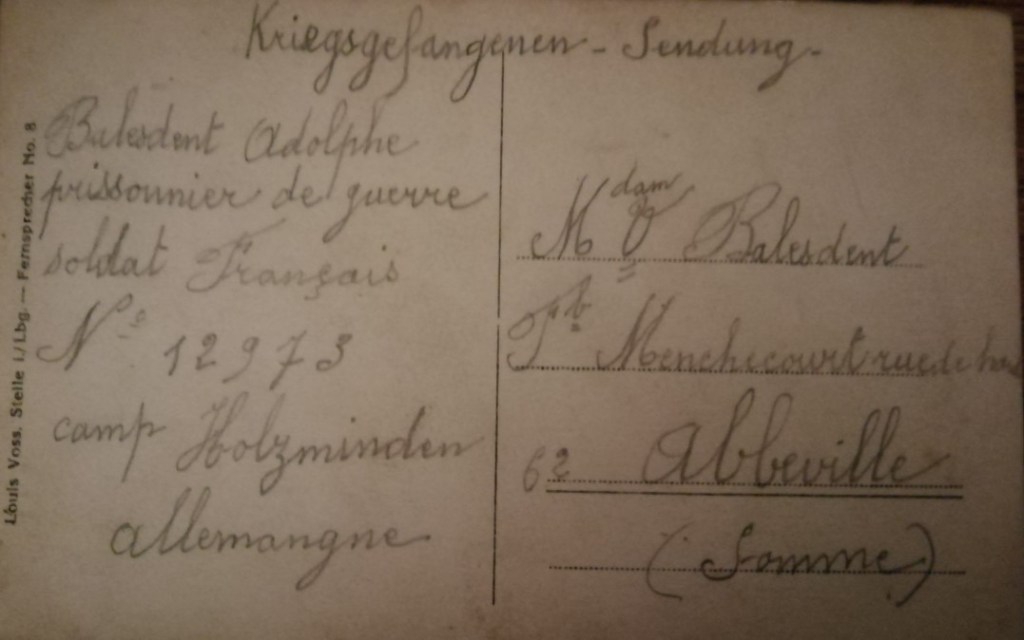 Kriegsgefangenen - Sendung -
Balesdent Adolphe
prissounnier de guerre
soldat Français
N° 12973
camp Holzminden
allemangne
Mdam Balesdent
Fb Menchecourt rue de
62 Abbeville
(Somme)
Louis Voss. Stelle i./Lbg. — Fernsprecher No. 8